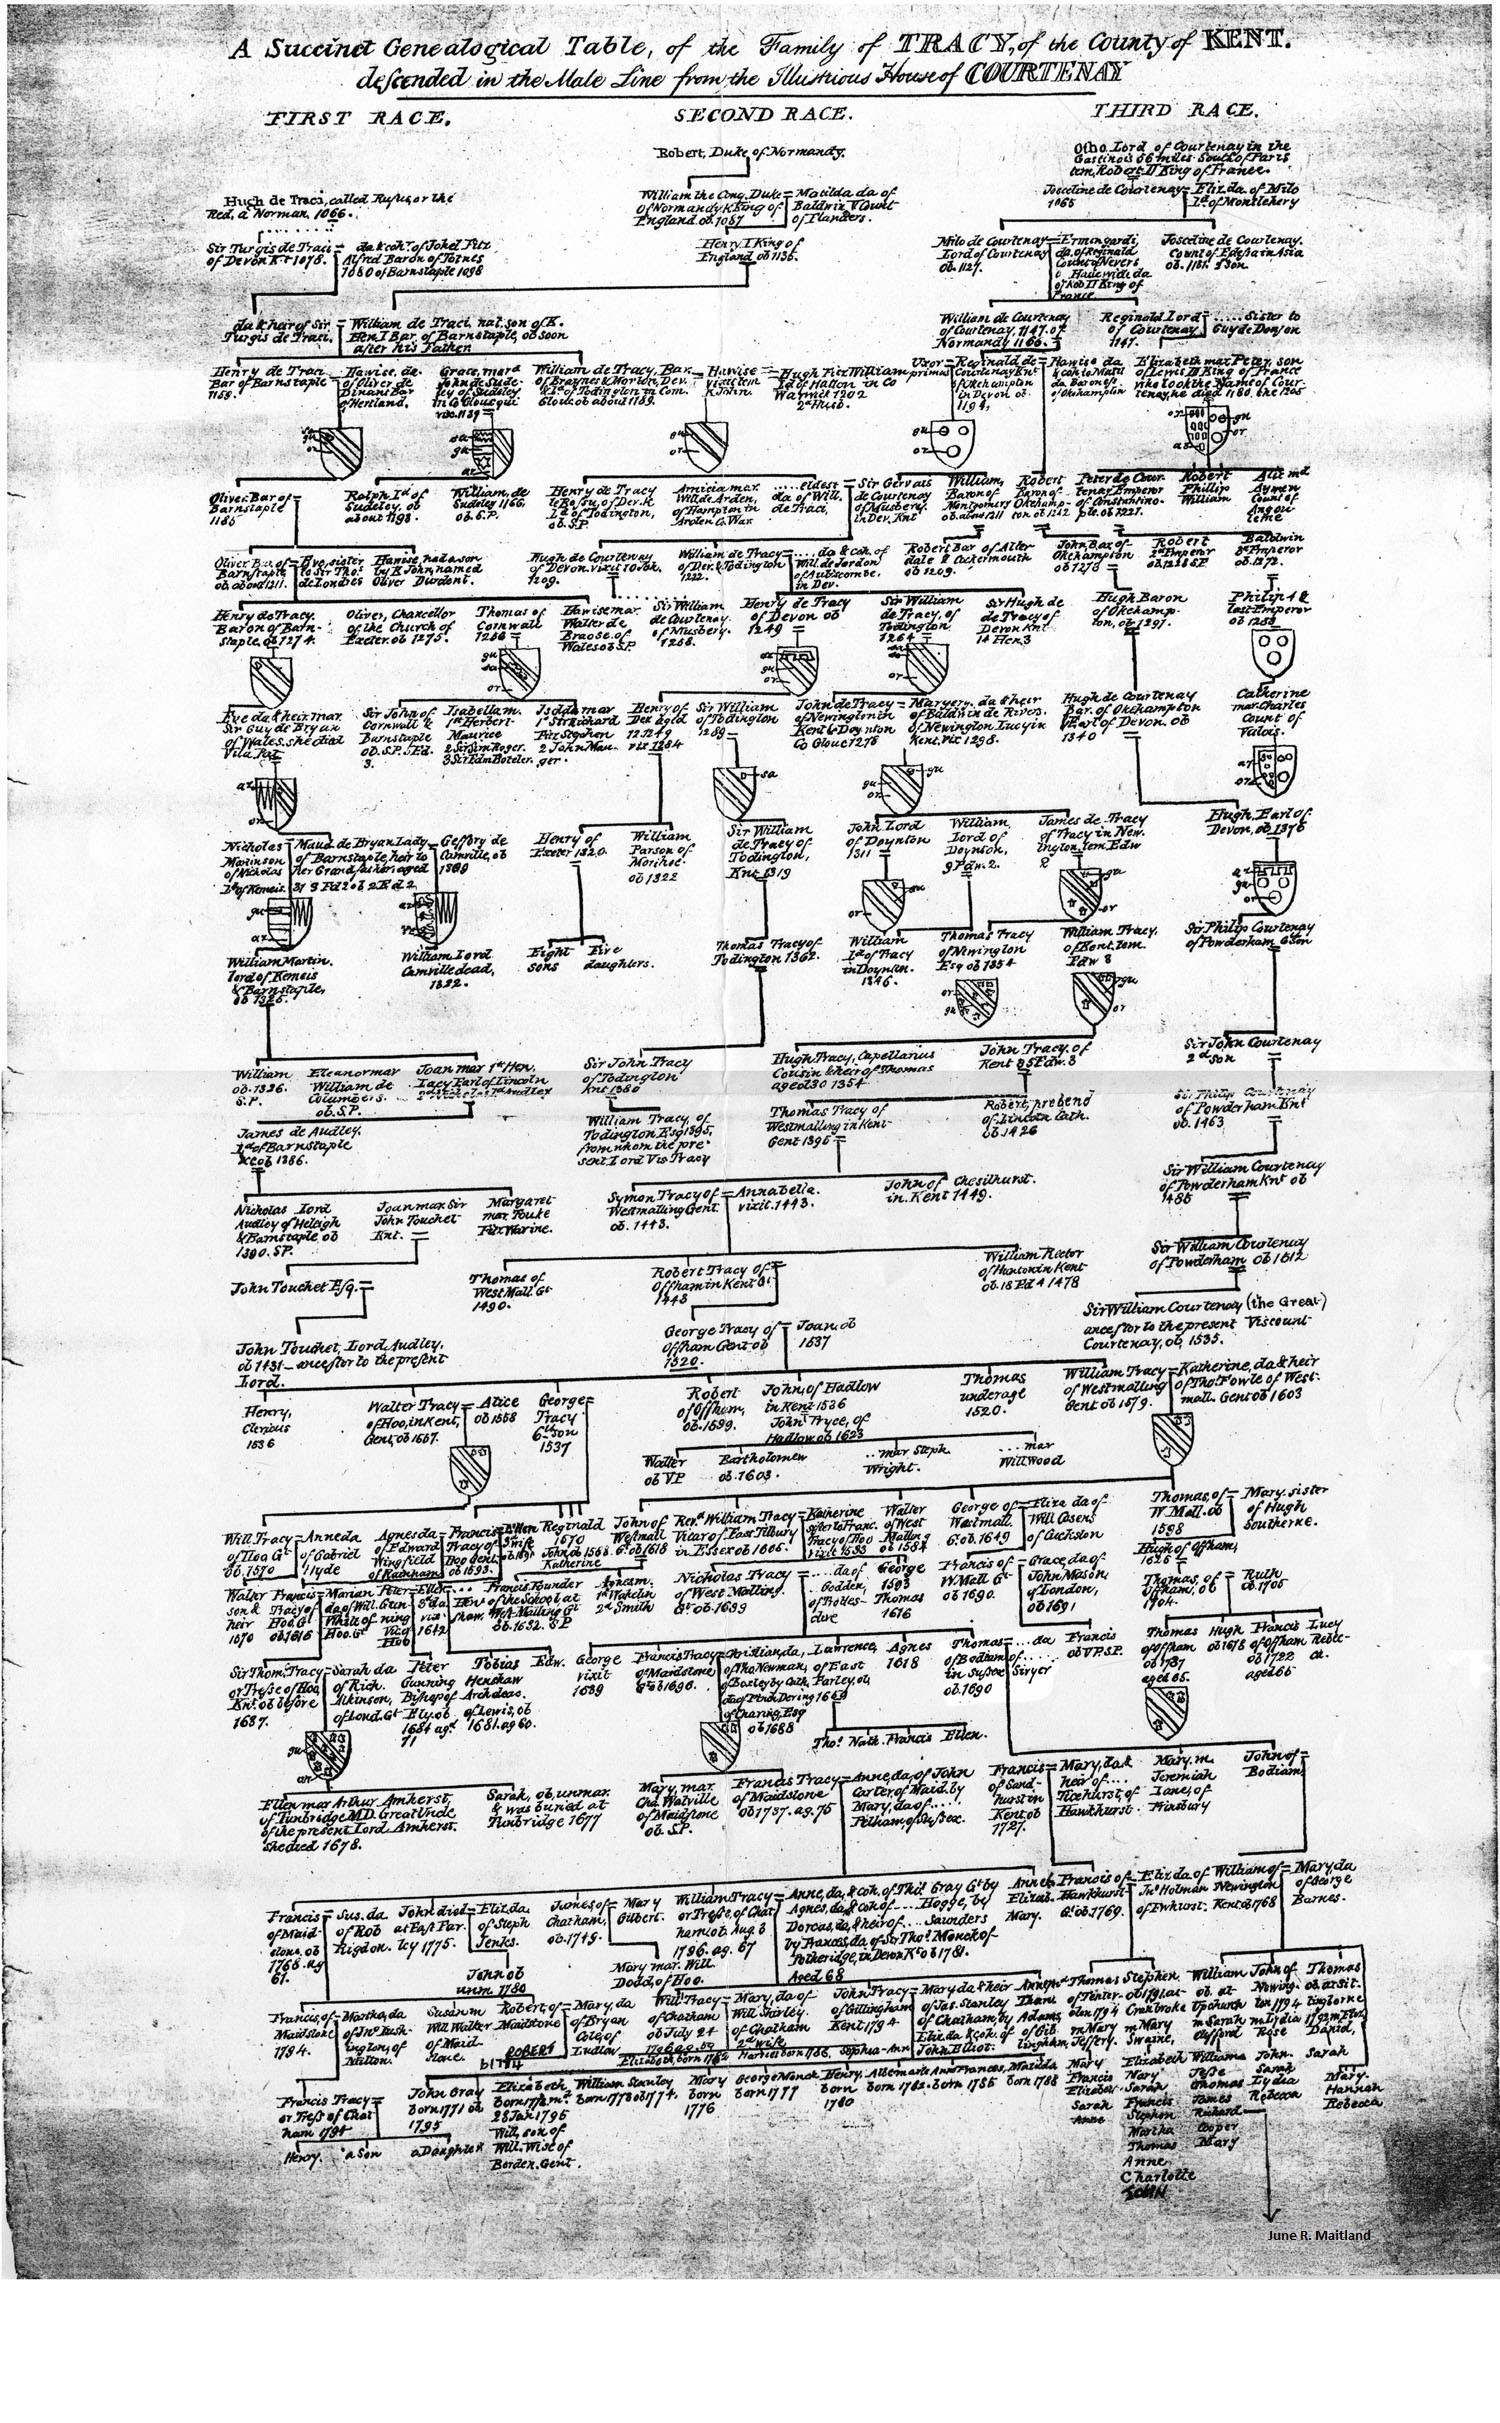 A Succinct Genealogical Table, of the Family of TRACY, of the County of KENT.
descended in the Male Line from the Illustrious House of COURTENAY
FIRST RACE.
SECOND RACE.
THIRD RACE.
Robert, Duke of Normandy.
Otho Lord of Courtenay in the
Gastinois 56 miles South of Paris
tem. Robert II King of France.
Hugh de Traci, called Rufus, or the
Red, a Norman, 1066.
William the Conq. Duke = Matilda da of
of Normandy & King of Baldwin V Count
England ob. 1087 of Flanders.
Josceline de Courtenay = Eliz. da. of Milo
1065 Ld. of Montlehery
Sir Turgis de Traci = da & coh. of Johel Fitz
of Devon Kt 1078. Alfred Baron of Totnes
1080 of Barnstaple 1098
Henry I King of
England ob 1135.
Milo de Courtenay = Ermengardi,
Lord of Courtenay da. of Reginald
ob. 1127. Count of Nevers
Josceline de Courtenay.
Count of Edessa in Asia
King of
France
da & heir of Sir = William de Traci, nat. son of K.
Turgis de Traci. Hen I Bar. of Barnstaple, ob soon
after his Father
William de Courtenay
of Courtenay, 1147. of
Normandy 1166.
Reginald Lord = ...... Sister to
of Courtenay Guy de Donjon
1147.
Henry de Traci = Hawise, da.
Bar of Barnstaple of Oliver de
1159. Dinant Bar
of Hertland.
Grace, mar d
John de Sude-
ley of Sudeley
William de Tracy, Bar.
of Braynes & Morton, Dev.
& Ld. of Todington in Com.
Glouc. ob about 1189.
Hawise
vixit tem
K John.
Hugh Fitz William
Ld of Hatton in Co
Warwick 1202
2d Husb.
Uxor = Reginald de = Hawise da
prima Courtenay Knt
of Okehampton
in Devon ob.
1194,
Elizabeth mar Peter, son
of Lewis King of France
who took the Name of Cour-
tenay, he died 1180. she 1205
Oliver Bar of =
Barnstaple
1185
Ralph Ld of
Sudeley, ob
about 1198.
William, de
Sudeley 1166.
ob. S.P.
Henry de Tracy
Ld of Todington,
ob. S.P.
Amicia mar.
Will. de Arden,
of Hampton in
Arden Co. War.
..... eldest = Sir Gervais
da of Will. de Courtenay
de Traci, of Musbery
in Dev. Knt
William,
Baron of
Montgomery
ob. about 1211
Robert
Baron of
Okehamp-
ton ob 1242
Peter de Cour-
tenay Emperor
of Constantino-
ple. ob 1221.
Robert
Phillip
William
Alie md
Aymer
Count of
Angou-
leme
Oliver Bar of = Eve, sister
Barnstaple to Sir Tho.s
ob about 1211. de Londres
Hawise, had a son
by K John, named
Oliver Durdent.
Hugh de Courtenay
of Devon. vixit 10 Joh.
1209.
William de Tracy = ..... da & coh. of
of Dev. & Todington Will. de Jordon
1222. in Dev.
Robert Bar of Aller
dale & Cockermouth
ob 1209.
John, Bar of
Okehampton
ob 1273
Robert
2d Emperor
ob 1228 SP
Baldwin
3d Emperor
ob. 1272.
Henry de Tracy.
Baron of Barn-
staple, ob 1274.
Oliver, Chancellor
of the Church of
Exeter. ob 1275.
Thomas of
Cornwall
Hawise mar.
Walter de
Braose of
Wales ob S.P.
Sir William
de Courtenay
of Musbery.
1258.
Henry de Tracy
of Devon ob
1249
Sir William
de Tracy, of
Todington
1264
Sir Hugh de
de Tracy of
Devon Knt
14 Hen 3
Hugh Baron
of Okehamp-
ton, ob 1297.
Philip 4 &
last Emperor
Eve da & heir mar.
Sir Guy de Bryan
of Wales. she died
Sir John of
Cornwall &
Barnstaple
ob. S.P.
Isabella m.
1st Herbert-
Maurice
2 Sir Sim Roger.
3 Sir Edm Boteler.
Isolda mar
1st Sir Richard
Fitz Stephen
2 John Mau-
ger.
Henry of
vix 1284
Sir William
of Todington
1289
John de Tracy = Margery, da & heir
of Newington in of Baldwin de Rivers.
Kent & Doynton of Newington Lucy in
Co Glouc 1276 Kent. vix 1298.
Hugh de Courtenay
Bar. of Okehampton
Earl of Devon. ob
1340
Catherine
mar. Charles
Count of
Valois.
Nicholas
Martin son
of Nicholas
Ld of Kemeis.
Maud de Bryan Lady
of Barnstaple, heir to
her Grandfather, aged
Geffory de
Camville, ob
1309
Henry of
Exeter 1320.
William
Parson of
Morihoe
ob 1322
Sir William
de Tracy of
Todington,
Knt 1319
John Lord
of Doynton
1311
William
Lord of
Doynton,
James de Tracy
of Tracy in New-
ington, tem. Edw
2
Hugh, Earl of
Devon, ob 1376
William Martin.
lord of Kemeis
& Barnstaple,
ob 1325.
William Lord
Camville dead,
1322.
Eight Five
sons daughters.
Thomas Tracy of
Todington 1362.
William
Ld of Tracy
in Doynton.
1346.
Thomas Tracy
of Newington
Esq ob 1354
William Tracy,
of Kent, tem.
Edw 3
Sir Philip Courtenay
of Powderham 6 Son
William
ob. 1326.
S.P.
Eleanor mar
William de
Columbers.
ob. S.P.
Joan mar 1st Hen.
Lacy Earl of Lincoln
Sir John Tracy
of Todington
Knt 1380
Hugh Tracy, Capellarius
Cousin & heir of Thomas
aged 30 1354
John Tracy of
Kent 35 Edw. 3
Sir John Courtenay
2d son
James de Audley.
Ld of Barnstaple
ob 1386.
William Tracy, of
Todington Esq 1395,
from whom the pre-
sent Lord Vis Tracy
Thomas Tracy of
Westmalling in Kent
Gent 1396
Robert, prebend
of Lincoln Cath.
ob. 1426
Sir Philip Courtenay
of Powderham Knt
ob. 1463
Nicholas Lord
Audley of Heleigh
& Barnstaple ob
1390. SP.
Joan mar Sir
John Touchet
Knt.
Margaret-
mar Fouke
Fitz Warine.
Symon Tracy of = Annabella.
Westmalling Gent. vixit. 1443.
ob. 1443.
John of Chesilhurst.
in Kent 1449.
Sir William Courtenay
of Powderham Knt ob
1485
John Touchet Esq. =
Thomas of
West Mall. Gt
1490.
Robert Tracy of
Offham in Kent Gt
1448
William Rector
in Kent
ob. 18 Ed 4 1478
Sir William Courtenay
of Powderham ob 1512
John Touchet, Lord Audley.
ob 1431 - ancestor to the present
Lord.
George Tracy of = Joan. ob
Offham Gent ob 1537
1520.
Sir William Courtenay (the Great)
ancestor to the present Viscount
Courtenay, ob, 1535.
Henry,
Clericus
1536
Walter Tracy = Alice
of Hoo, in Kent, ob 1558
Gent, ob 1557.
George =
Tracy
6th son
1537
Robert
of Offham,
ob. 1599.
John, of Hadlow
in Kent 1536
John Tryce, of
Hadlow ob 1623
Thomas
underage
1520.
William Tracy = Katherine, da & heir
of Westmalling of Tho.s Fowle of West-
Gent ob 1579. mall. Gent ob 1603
Walter
ob V.P
Bartholomew
ob. 1603.
..mar Steph.
Wright.
...mar
Will Wood
Will Tracy = Anne da
of Hoo Gt of Gabriel
ob. 1570 Hyde
Agnes da = Francis
of Edward Tracy of
Wingfield Hoo Gent.
of Rainham ob 1593.
Reginald
1570
Katherine
John of
Westmall
Gt ob 1618
Rev.d William Tracy =
Vicar of East Tilbury
in Essex ob 1605.
Katherine
sister to Franc.
Tracy of Hoo
vixit 1593
Walter
of West
Malling
ob 1584
George of = Eliza da of
Westmall. Will Cosens
G. ob. 1649 of Cuckston
Thomas, of = Mary. sister
W Mall. ob of Hugh
1598 Southerne.
Hugh of Offham,
1625
Walter
son &
heir
1570
Francis =
Tracy of
Hoo. Gt
ob 1616
Francis Founder
of the School at
West Malling Gt
ob. 1632. SP
Agnes m.
1st Wakelin
2d Smith
Nicholas Tracy = .... da of
of West Malling. Godden,
Gt ob. 1639
George
1593
Thomas
1616
Francis of = Grace, da of
W. Mall Gt John Mason,
ob 1690. of London,
ob 1691
Thomas, of = Ruth
Offham, ob ob. 1705
1704.
Sir Thom. Tracy = Sarah da
or Tresse of Hoo, of Rich.
Knt. ob before Atkinson,
1637. of Lond. Gt
Peter
Gunning
Bishop of
Ely. ob
1684 agd
71
Tobias
Henshaw
Archdeac.
of Lewis, ob
1681. ag 60.
Edw.
George
vixit
1639
Francis Tracy =
of Maidstone
Gt ob 1696.
Lawrence,
of East
Farley, ob
ob 1688
Agnes
1618
Thomas = ....da
of Bodiam of ......
in Sussex Siryer
ob. 1690
Francis
ob V.P. S.P.
Thomas
of Offham
ob 1737
aged 65.
Hugh
ob 1678
Francis
of Offham
ob 1722
aged 65
Lucy
Rebec-
ca.
Tho.s Nath. Francis Ellen.
Ellen mar Arthur Amherst,
of Tunbridge M.D. Great Uncle
of the present Lord Amherst.
she died 1678.
Sarah, ob, unmar.
& was buried at
Tunbridge 1677
Mary, mar.
Cha. Walville
of Maidstone
ob. S.P.
Francis Tracy = Anne, da, of John
of Maidstone Carter, of Maid. by
ob 1737. ag. 75 Mary, da of.....
Pelham, of Sussex.
Francis = Mary, da &
of Sand- heir of....
hurst in Ticehurst, of
Kent. ob Hawkhurst.
1727.
Mary, m.
Jeremiah
Lane, of
Finsbury
John of =
Bodiam
Francis = Sus. da
of Maid- of Rob
stone, ob Rigdon.
1768. ag
61.
John died = Eliz. da
at East Far- of Steph
ley 1775. Jenks.
James of = Mary
Chatham, Gilbert.
ob. 1749.
William Tracy =
or Tresse, of Chat
ham ob. Aug 3
1796. ag. 67
Anne, da, & coh. of Tho.s Gray Gt by
Agnes, da & coh of ..... Hogge, by
Dorcas, da, & heir of .... Saunders
by Frances, da, of Sir Tho.s Monck of
Potheridge, in Devon Kt ob 1781.
Aged 68
Anne
Elizab.
Mary.
Francis of = Eliz da of
Hawkhurst Jno Holman
Gt ob. 1769. of Ewhurst.
William of = Mary, da
Newington of George
Kent ob 1768 Barnes.
John ob
unm 1780
Mary mar. Will
Dodd, of Hoo.
Francis, of = Martha, da
Maidstone of Jno Rush-
1794. ington, of
Milton.
Susan m
Will Walter
of Maid-
stone.
Robert, of = Mary, da
Maidstone of Bryan
Cole, of
Ludlow
ROBERT
b 1774
Will Tracy = Mary, da of
of Chatham Will Shirley.
ob July 24 of Chatham
2d wife
John Tracy = Mary da & heir
of Gillingham of Jas. Stanley
Kent 1794 of Chatham, by
Eliz. da & coh. of
John Elliot.
Thomas
of Tenter-
den 1794
m Mary
Jeffery.
Stephen
ob 1791 at
Cranbroke
m Mary
Swaine,
William
ob. at
Upchurch
m Sarah
Clifford
John of
Newing-
ton 1794
m Lydia
Rose
Thomas
ob. at Sit-
tingborne
David,
Elizabeth, born 1782 Harriet born 1786. Sophia-Ann
Francis Tracy =
or Tress of Chat
ham 1794
John Gray
born 1771 ob.
1795
Elizabeth
28 Jan 1795
Will, son of
Will. Wise of
Borden. Gent.
William Stanley
born 1773 ob 1774.
Mary
born
1776
George Monck
born 1777
Henry.
born
1780
Albemarle
born 1782.
Ann Frances,
born 1785
Matilda
born 1788
Mary
Francis
Elizabet.
Sarah
Anne
Elizabeth
Mary
Sarah
Francis
Stephen
Martha
Thomas
Anne
Charlotte
JOHN
Williama
Jesse
Thomas
James
Richard
Cooper
Mary
John.
Sarah
Lydia
Rebecca
Sarah
Mary.
Hannah
Rebecca
Henry. a Son a Daughter
June R. Maitland